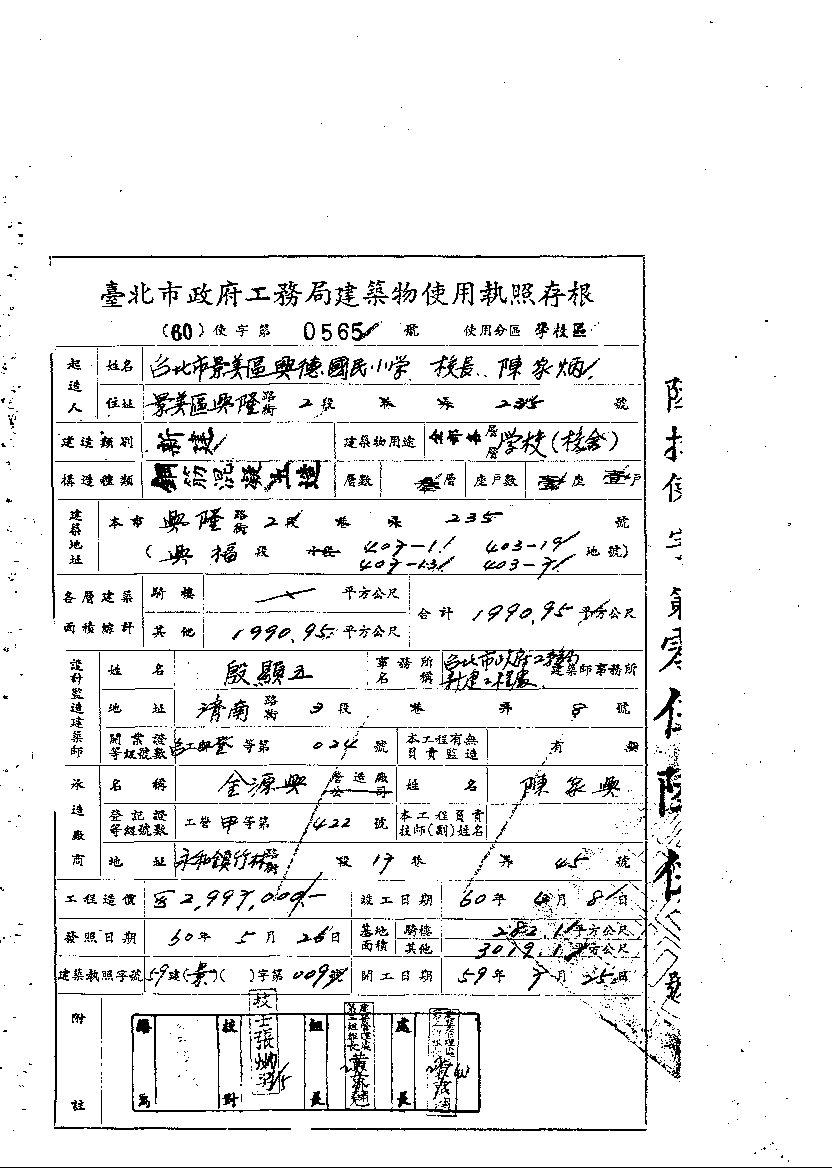 臺北市政府工務局建築物使用執照存根
(60) 使字第 0565 號 使用分區 學校區
起造人 姓名 台北市景美區興德國民小学 校長 陳家炳
住址 景美區興隆 路街 2段 巷 弄 235 號
建造類別 新建 建築物用途 層 学校(校舍)
構造種類 鋼筋混凝土造 層數 層 座戶數 壹座 壹戶
建築地址 本市 興隆 路街 2段 巷 弄 235 號
(興福 段 小段 403-11 403-19 地號)
403-13 403-7
各層建築面積綜計 騎樓 平方公尺 合計 1990.95 平方公尺
其他 1990.95 平方公尺
設計監造建築師 姓名 殷顯五 事務所名稱 台北市政府工務局 建築師事務所
地址 濟南 路街 3段 巷 弄 8號
開業證等級號數 等第 024 號 本工程有無負責監造 有 無
承造廠商 名稱 金源興 營造廠公司 姓名 陳家興
登記證等級號數 工營甲等第 422 號 本工程負責技師(副)姓名
地址 永和鎮竹林路 段 17巷 弄 45號
工程造價 2,997,000.- 竣工日期 60年 4月 8日
發照日期 60年 5月 26日 基地面積 騎樓 282.1 平方公尺
其他 3019.1 平方公尺
建築執照字號 59建(景)( )字第009號 開工日期 59年 7月 25日
附註
校對 組長 處長
技士張炳
陸拾使字第零伍陸伍號